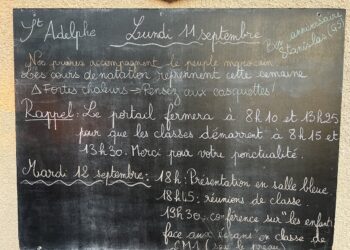 St Adelphe Lundi 11 septembre
Bon anniversaire
Stanislas
Nos prières accompagnent le peuple marocain
Les cours de natation reprennent cette semaine
⚠ Fortes chaleurs → Pensez aux casquettes!
Rappel: Le portail fermera à 8h10 et 13h25
pour que les classes démarrent à 8h15 et
13h30. Merci pour votre ponctualité.
Mardi 12 septembre: 18h: Présentation en salle bleue
18h45: réunions de classe
19h30: conférence sur "les enfants
face aux écrans" en classe de